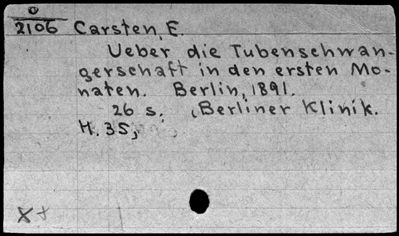 o
2106 Carsten, E.
Ueber die Tubenschwan-
gerschaft in den ersten Mo-
naten. Berlin, 1891.
26 s. (Berliner Klinik.
H. 35,
X+